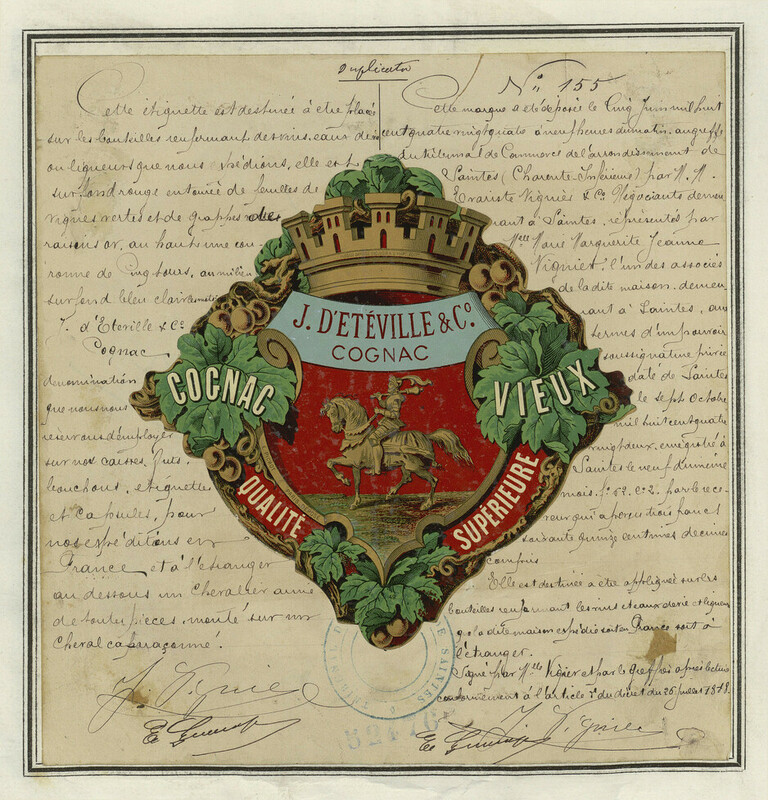 Duplicata
Cette étiquette est destinée à être placée
sur les bouteilles renfermant des vins, eaux de vie
ou liqueurs que nous expédions, elle est
sur fond rouge entourée de feuilles de
vignes vertes et de grappes de
raisins or, au haut une cou-
ronne de Cinq tours, au milieu
sur fond bleu clair
J. d'Eteville & Co
Cognac
denomination
que nous nous
réservons d'employer
sur nos caisses, futs,
bouchons, etiquettes
et Capsules, pour
nos expéditions en
France et à l'étranger
au dessous un Chevalier armé
de toutes pieces, monté sur un
cheval caparaçonné.
J. Vignier
No 155
Cette marque a été déposée le Cinq Juin mil huit
cent quatre vingt quatre à neuf heures du matin, au greffe
du tribunal de Commerce de l'arrondissement de
Saintes (Charente Inférieure) par M. M.
Evariste Vignier & Co Négociants demeu
rant à Saintes, représentés par
Melle Marie Marguerite Jeanne
Vignier, l'un des associés
de la dite maison, demeu
rant à Saintes, aux
termes d'un pouvoir
sous signature privée
daté de Saintes
le sept Octobre
mil huit cent quatre
vingt deux, enregistré à
Saintes le neuf du même
mois, fo 62, C. 2, par le rece-
veur qui a perçu trois francs
soixante quinze centimes decimes
compris
Elle est destinée a etre appliquée sur les
bouteilles renfermant les vins et eaux de vie et liqueurs
que la dite maison expédie soit en France soit à
l'étranger.
Signé par Melle Vignier et par le Greffier après lecture
conformément à l'article 5 du décret du 26 juillet 1858.
J. Vignier
J. D'ETÉVILLE & Co.
COGNAC
COGNAC
VIEUX
QUALITÉ
SUPÉRIEURE
DE SAINTES
52476